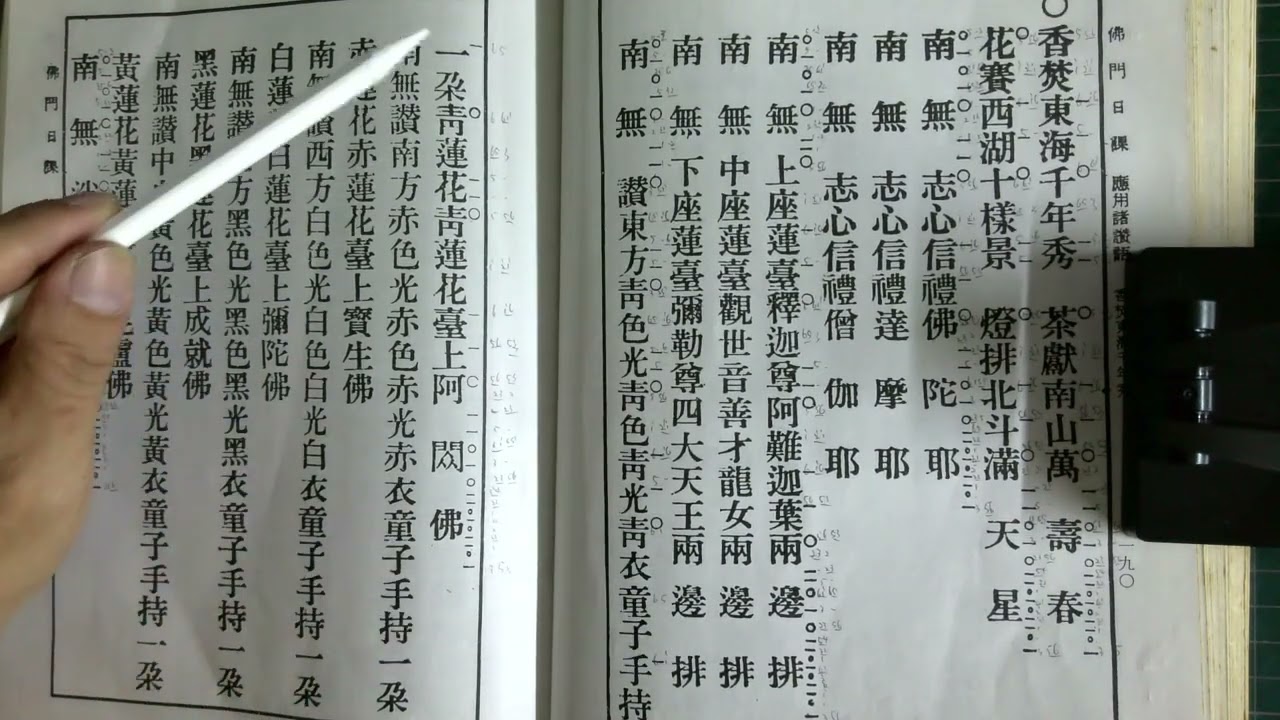 佛門日課 應用諸讚語
一九〇
香焚東海千年秀 茶獻南山萬壽春
花賽西湖十樣景 燈排北斗滿天星
南無志心信禮佛陀耶
南無志心信禮達摩耶
南無志心信禮僧伽耶
南無上座蓮臺釋迦尊阿難迦葉兩邊排
南無中座蓮臺觀世音善才龍女兩邊排
南無下座蓮臺彌勒尊四大天王兩邊排
南無讚東方青色光青色青光青衣童子手持
一朶青蓮花青蓮花臺上阿閦佛
南無讚南方赤色光赤色赤光赤衣童子手持一朶
赤蓮花赤蓮花臺上寶生佛
南無讚西方白色光白色白光白衣童子手持一朶
白蓮白蓮花臺上彌陀佛
南無讚方黑色光黑色黑光黑衣童子手持一朶
黑蓮花黑蓮花臺上成就佛
南無讚中黃色光黃色黃光黃衣童子手持一朶
黃蓮花黃蓮盧佛
南無
佛門日課